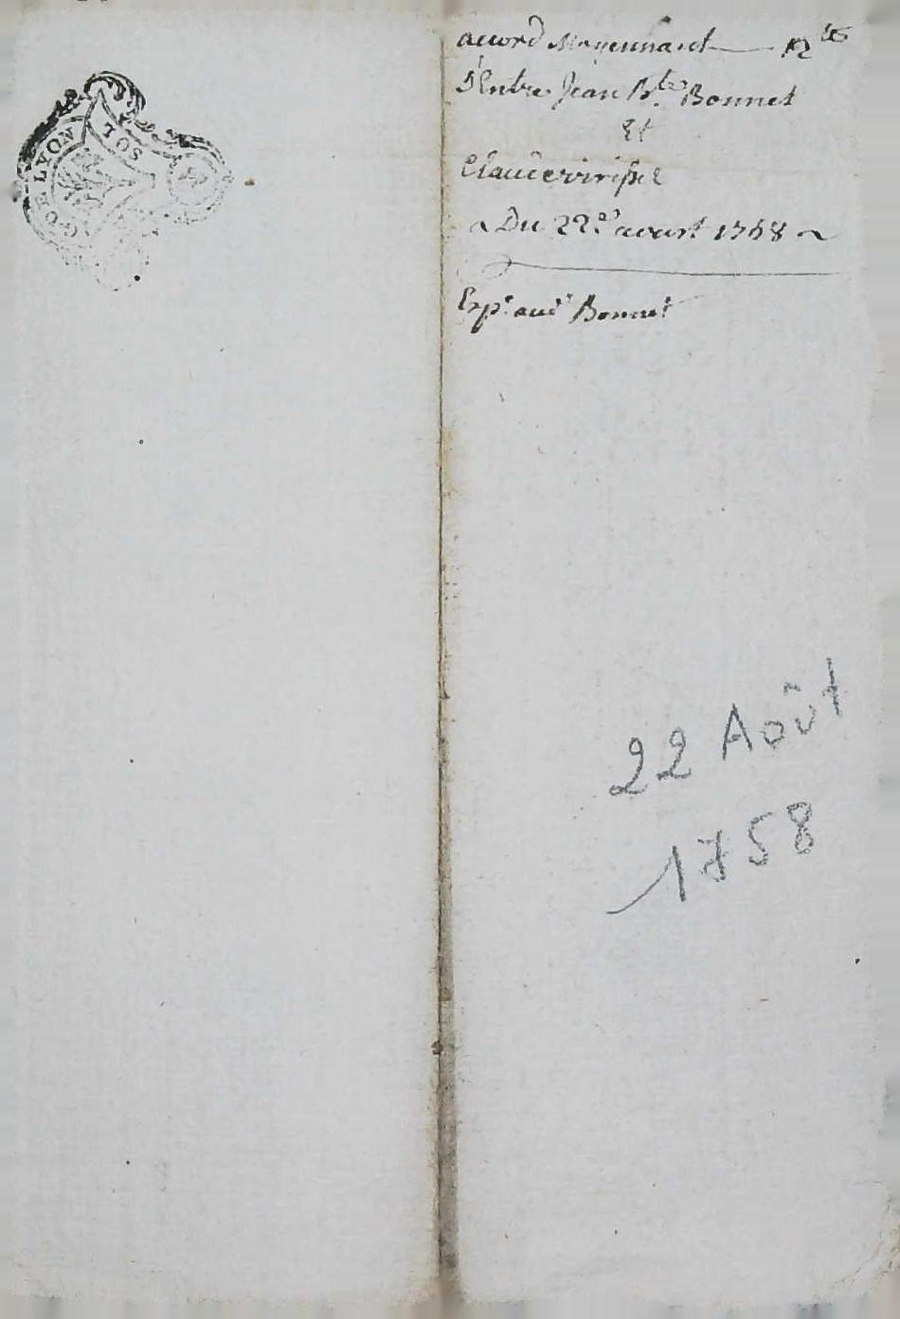 GE. LYON
SOL
accord Moyennant 12 ltt
D'Entre Jean Bte Bonnet
Et
Claude
Du 22e aoust 1758
Expe aud Bonnet
22 Août
1758